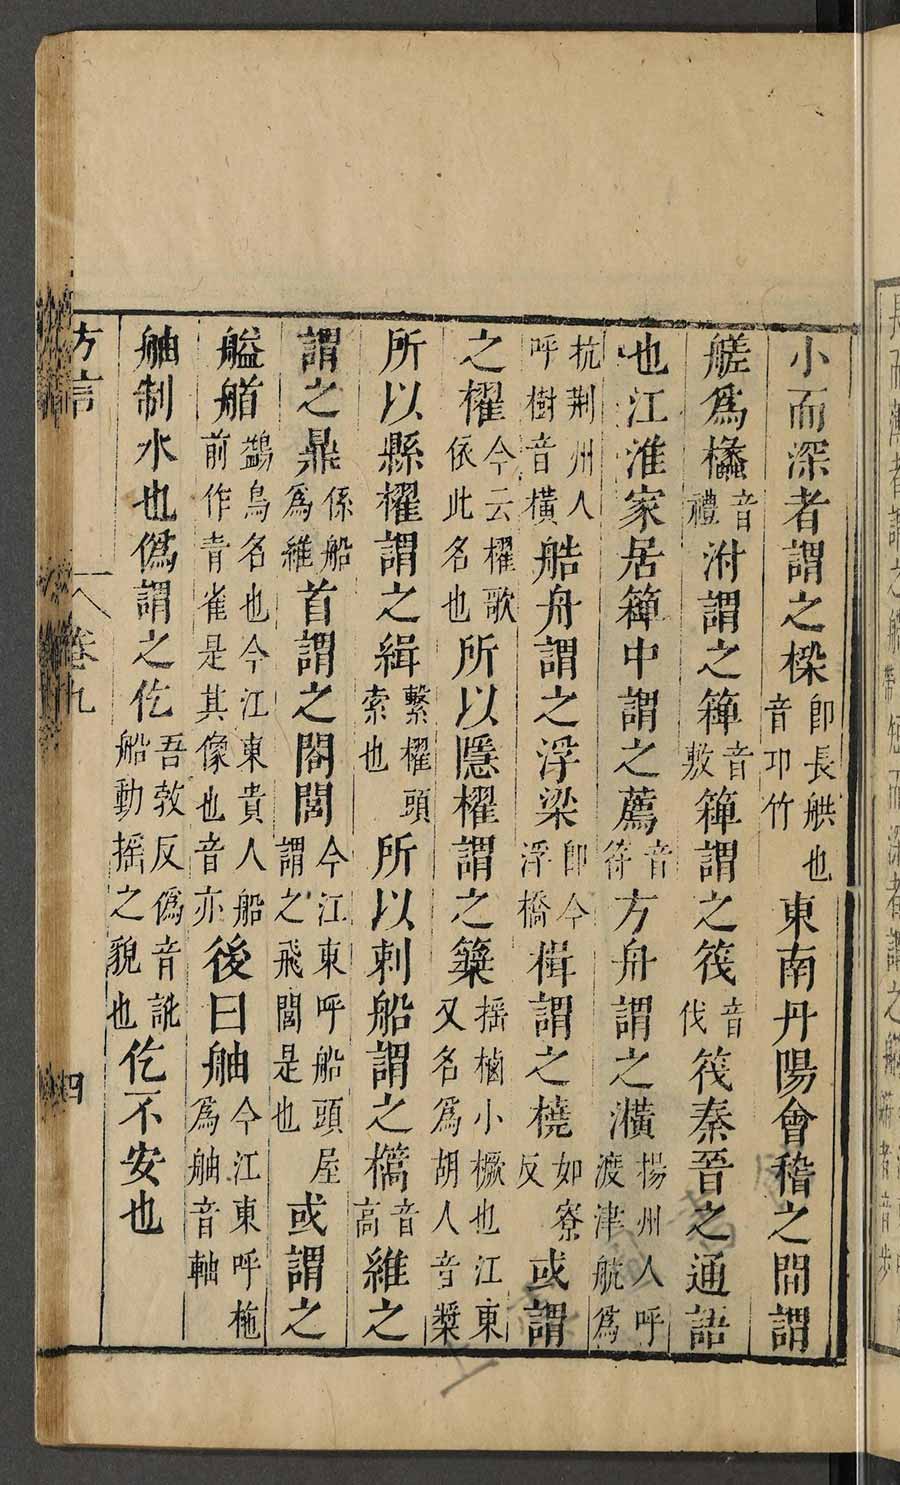 小而深者謂之樑即長舼也音邛竹東南丹陽會稽之間謂
艖爲欚音禮泭謂之䉬音敷䉬謂之筏音伐筏秦晉之通語
也江淮家居䉬中謂之薦音符方舟謂之潢楊州人呼渡津航爲
杭荆州人呼樹音橫艁舟謂之浮梁即今浮橋楫謂之橈如寮反或謂
之櫂今云櫂歌依此名也所以隱櫂謂之䉁搖樐小橛也江東又名爲胡人音槳
所以縣櫂謂之緝繫櫂頭索也所以刺船謂之檇音高維之
謂之鼎係船爲維首謂之閤閭今江東呼船頭屋謂之飛閭是也或謂之
艗艏鷁鳥名也今江東貴人船前作青雀是其像也音亦後曰舳今江東呼柂爲舳音軸
舳制水也僞謂之仡吾敦反僞音訛船動搖之貌也仡不安也
方言
卷九
四